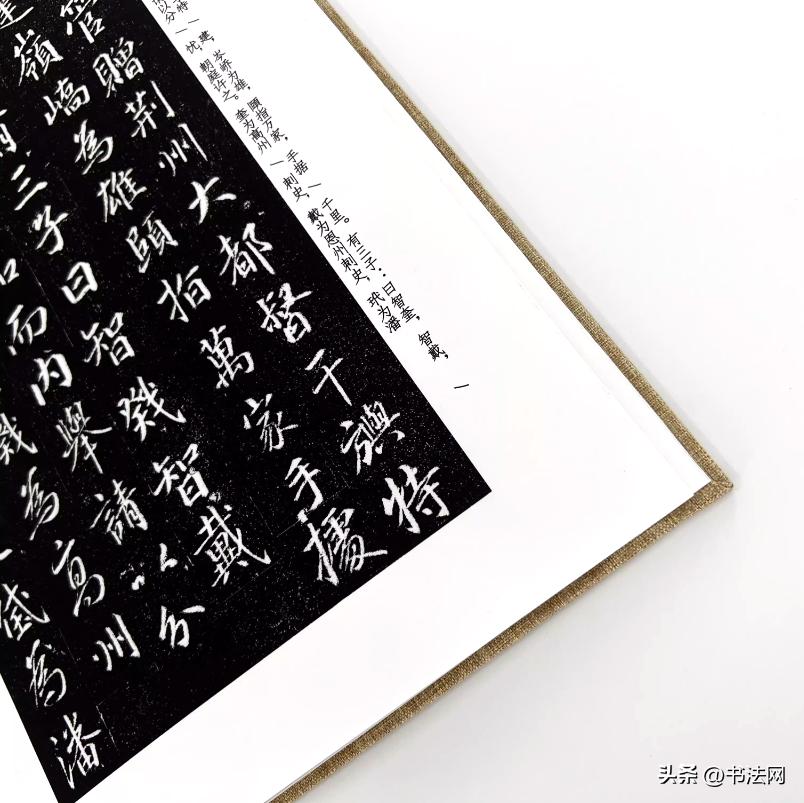 特｜建，岑峤为雄，頤指万家，手据｜千里。有三子：曰智奎，智戴，｜
以分｜忧，朝庭许之。奎为高州｜刺史，戴为恩州刺史，玳为潘
官贈荆州大都督干旟特
建嶺嶠為雄頤指萬家手據
三子曰智戣智戴
而内舉請以分
戣為高州
為潘
头条 @书法网